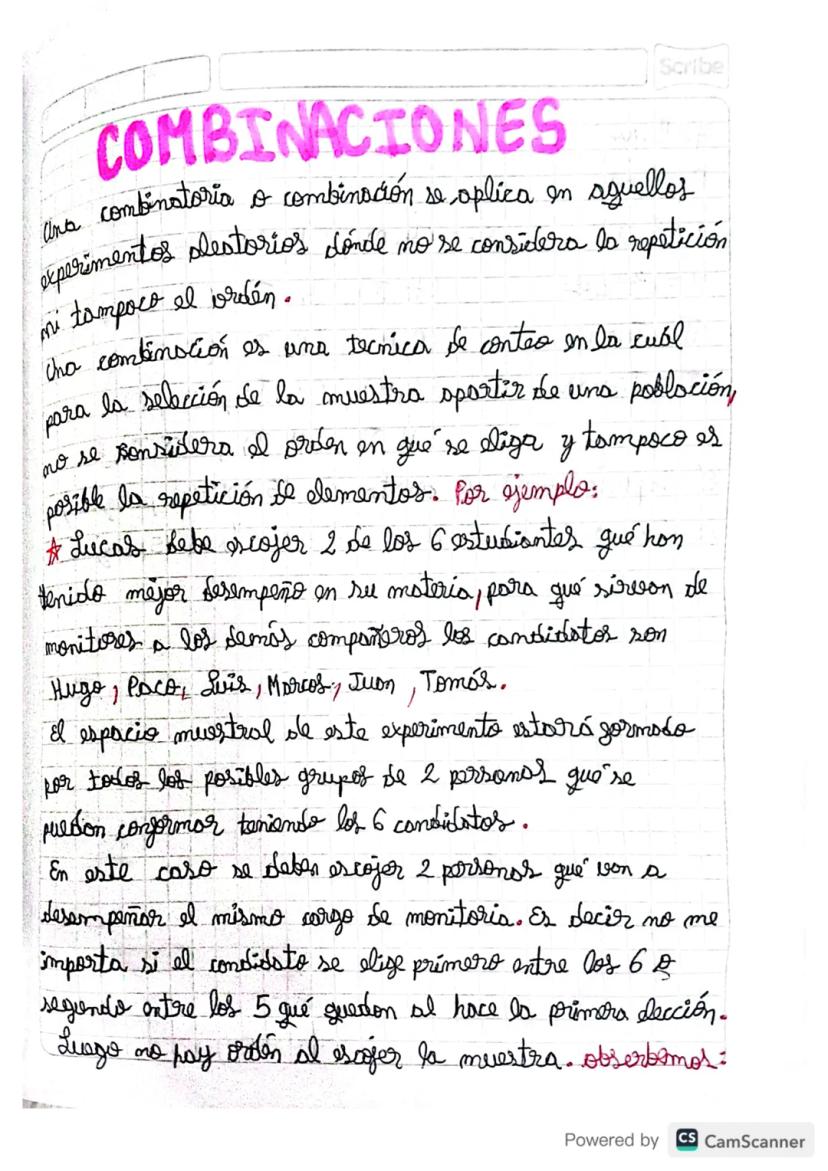 Scribe
COMBINACIONES
Una combinatoria o combinación se aplica en aquellos
experimentos aleatorios dónde no se considera la repetición
ni tampoco el ordén.
Una combinación es una tecnica de conteo en la cuál
para la selección de la muestra apartir de una población,
no se considera el orden en qué se eliga y tampoco es
posible la repetición de elementos. Por ejemplo:
☆ Lucas debe escojer 2 de los 6 estudiantes qué han
tenido mejor desempeño en su materia, para qué sirvan de
monitores a los demás compañeros los candidatos son
Hugo, Paco, Luis, Marcos, Juan, Tomás.
El espacio muestral de este experimento estará formado
por todos los posibles grupos de 2 personas qué se
puedan conformar teniendo los 6 candidatos.
En este caso se deben escojer 2 personas qué van a
desempeñar el mismo cargo de monitoria. Es decir no me
importa si el candidato se elige primero entre los 6 o
segundo entre los 5 qué quedan al hace la primera elección.
Luego no hay ordén al escojer la muestra. obserbemos:
Powered by CS CamScanner